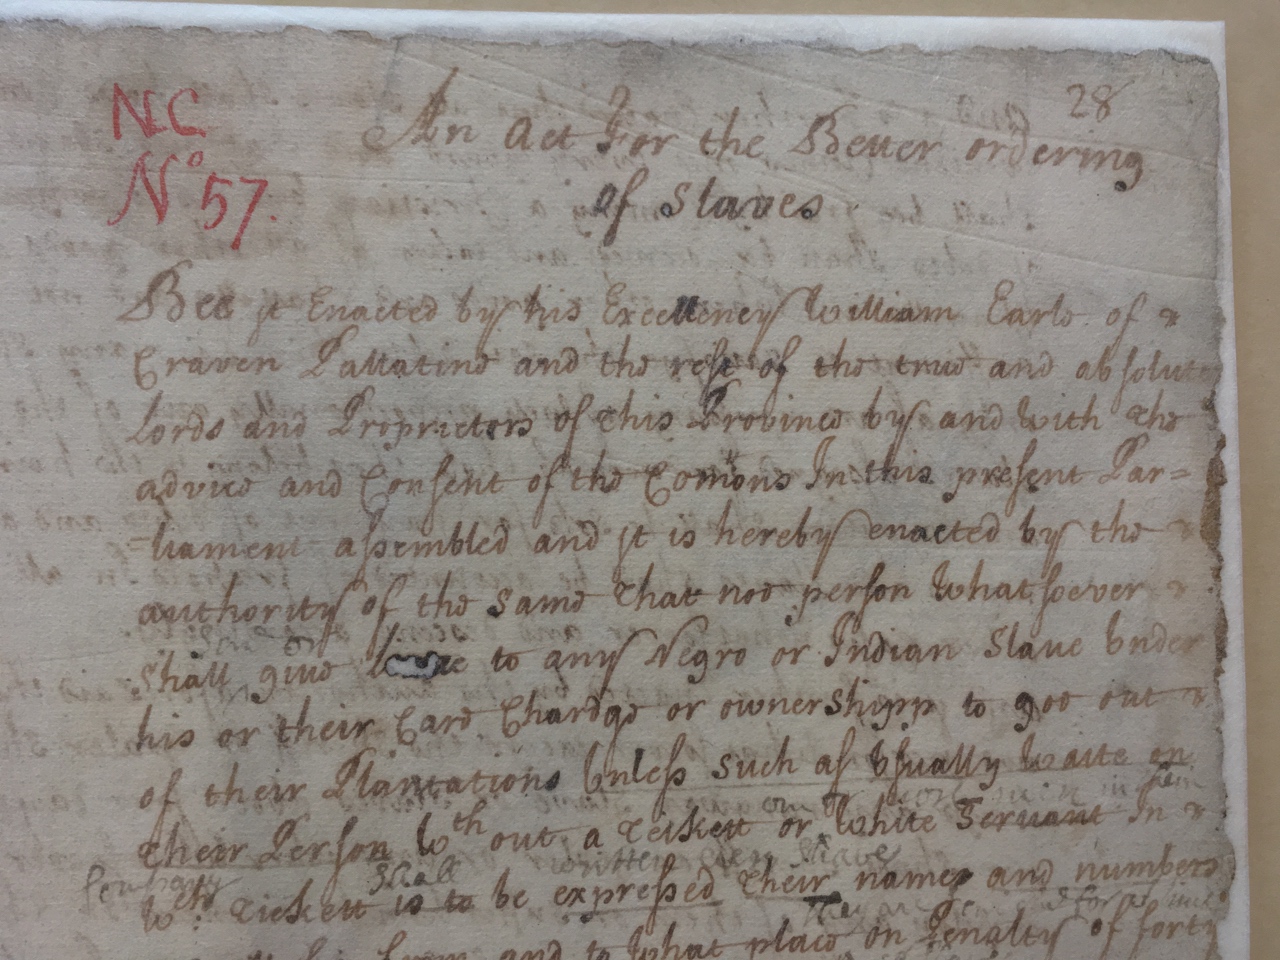 28
NC
No 57.
An Act For the Better ordering
of Slaves
Bee it Enacted by his Excellency William Earle of &
Craven Pallatine and the rest of the true and absolute
Lords and Proprietors of this Province by and with the
advice and Consent of the Comons In this present Par=
=liament assembled and it is hereby enacted by the &
authority of the same that noe person whatsoever &
shall give leave to any Negro or Indian Slave Under
his or their Care Chardge or ownershipp to goe out &
of their Plantations Unless such as Usually waite on
their Person Wth out a tickett or white Servant In &
written
shall
wch tickett is to be expressed their names and numbers
from and to what place on Penalty of forty